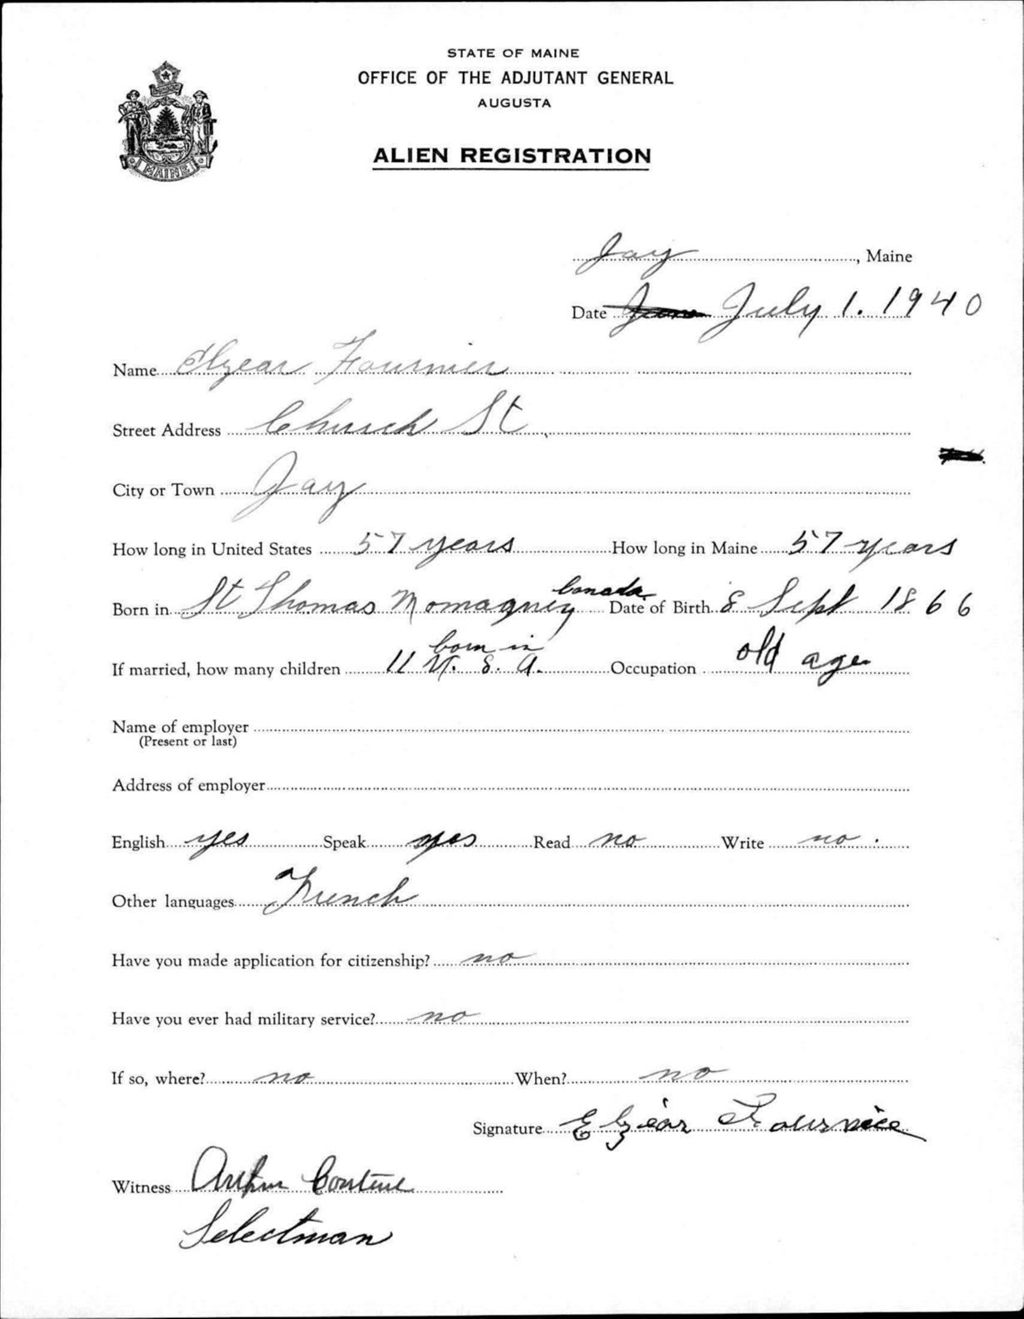 STATE OF MAINE
OFFICE OF THE ADJUTANT GENERAL
AUGUSTA
ALIEN REGISTRATION
MAINE
Jay, Maine
Date June July 1. 1940
Name Elzear Fournier
Street Address Church St
City or Town Jay
How long in United States 57 years How long in Maine 57 years
Born in St Thomas Momagney Canada Date of Birth 8 Sept 1866
If married, how many children 11 born in U. S. A. Occupation old age
Name of employer
(Present or last)
Address of employer
English yes Speak yes Read no Write no.
Other languages French
Have you made application for citizenship? no
Have you ever had military service? no
If so, where? no When? no
Signature Elzéar
Witness Arthur
Selectman